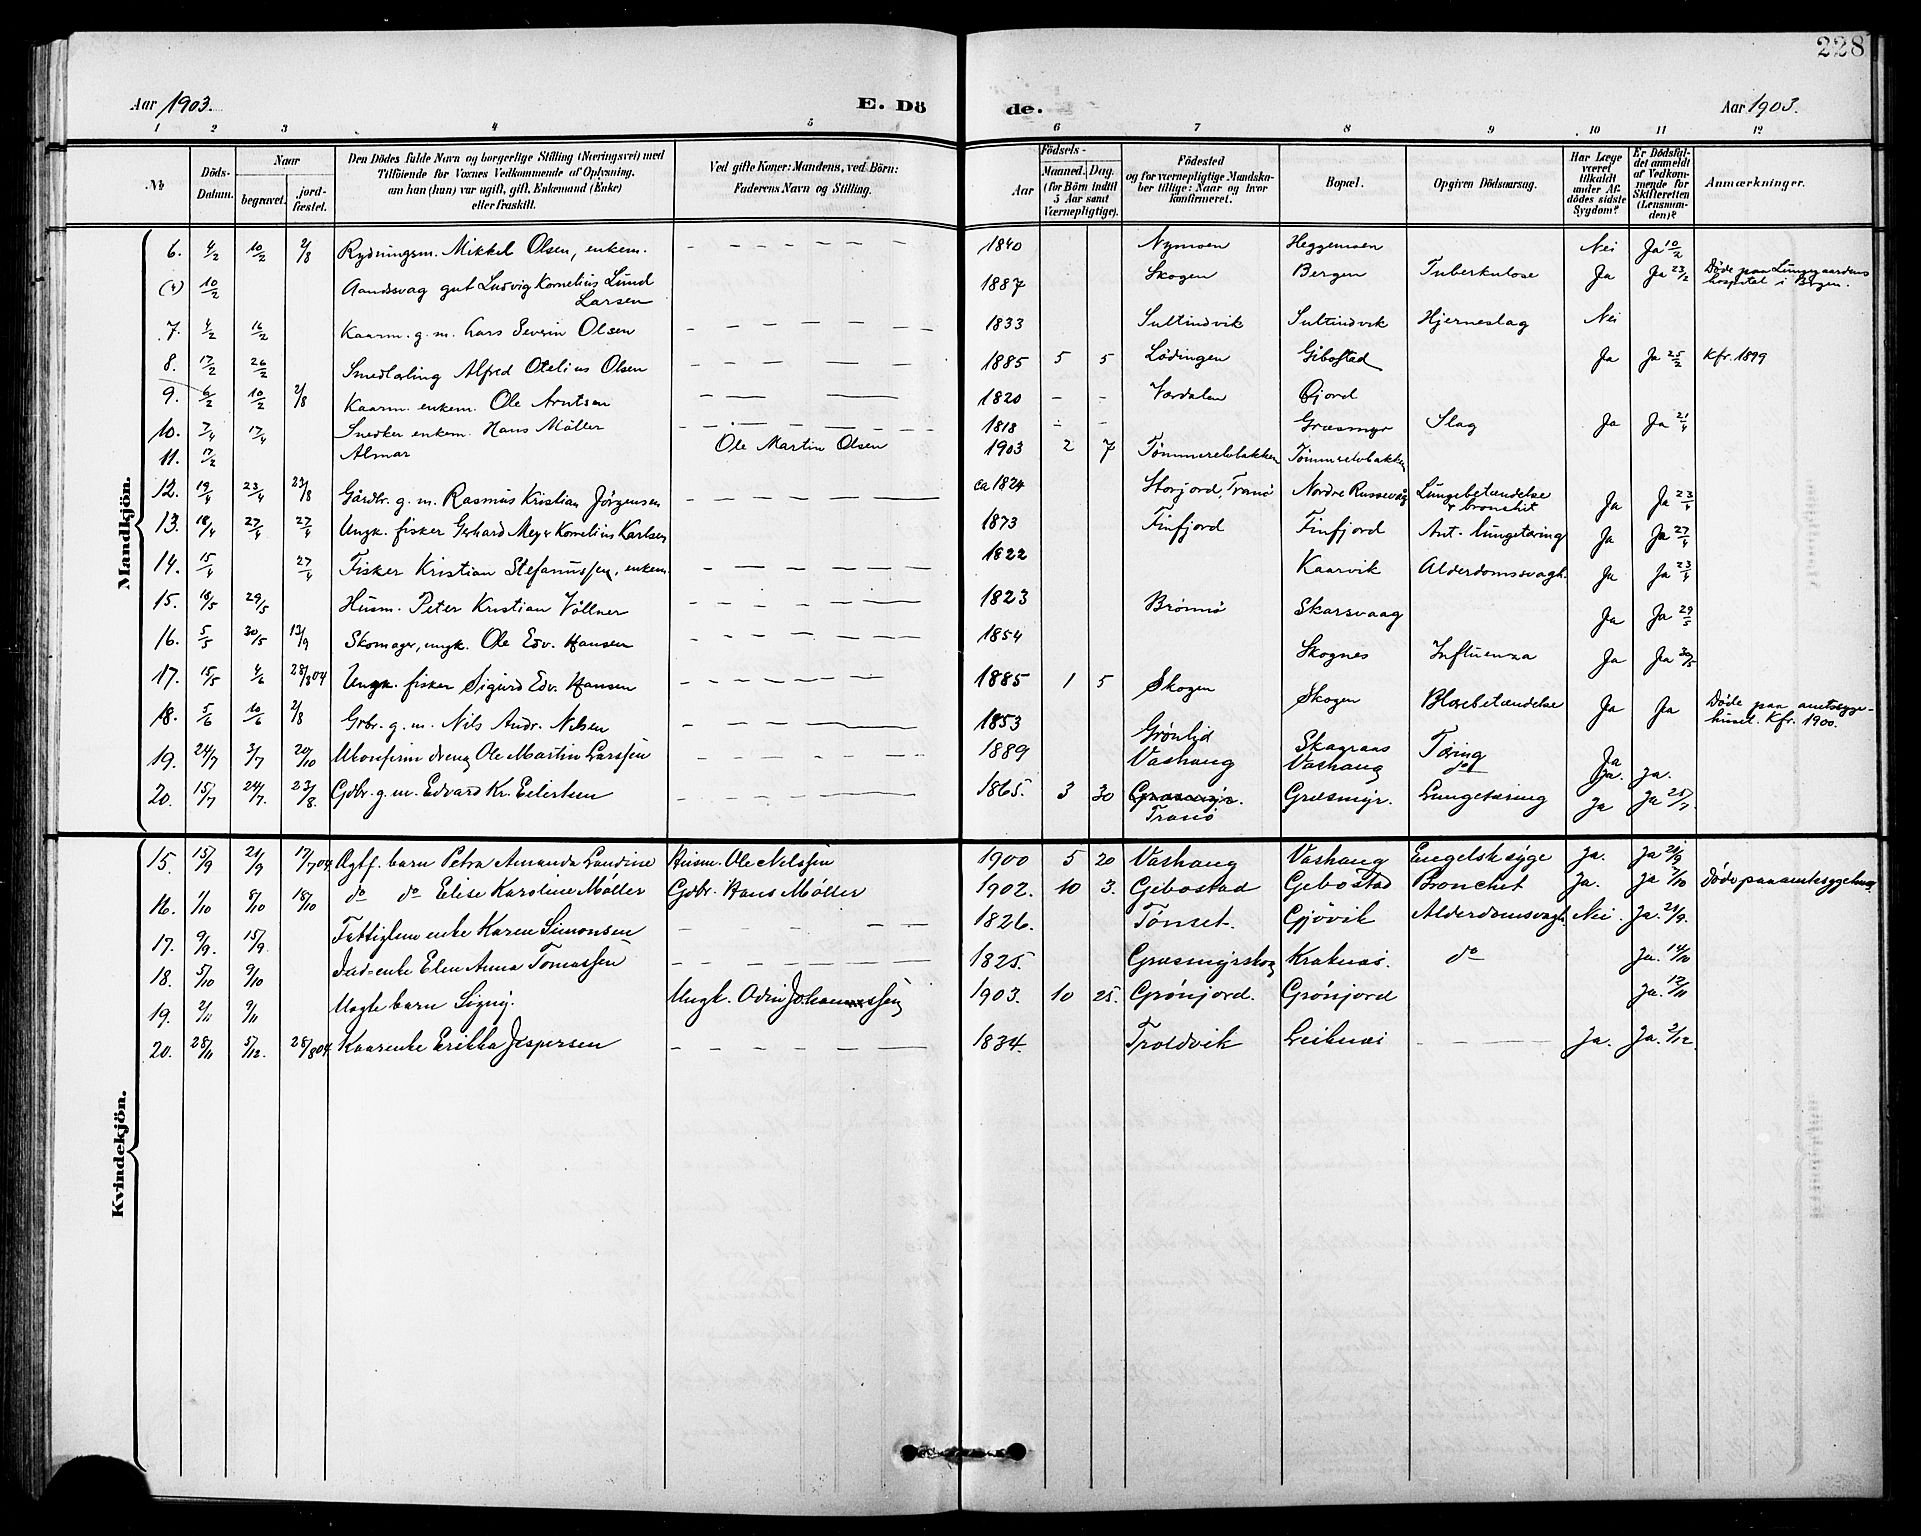 228
Aar 1903. E. Dö de. Aar 1903.
1 2 3 4 5 6 7 8 9 10 11 12
No Döds-Datum. Naar begravet. jord-fæstet. Den Dödes fulde Navn og borgerlige Stilling (Næringsvei) med Tilföiende for Voxnes Vedkommende af Oplysning, om han (hun) var ugift, gift, Enkemand (Enke) eller fraskilt. Ved gifte Koner: Mandens, ved Börn: Faderens Navn og Stilling. Födsels- Aar Maaned. Dag. (for Börn indtil 5 Aar samt Værnepligtige). Födested og for værnepligtige Mandskaber tillige: Naar og hvor konfirmeret. Bopæl. Opgiven Dödsaarsag. Har Læge været tilkaldt under Afdödes sidste Sygdom? Er Dödsfaldet anmeldt af Vedkommende for Skifteretten (Lensmanden)? Anmærkninger.
Mandkjön.
6. 4/2 10/2 2/8 Rydningsm. Mikkel Olsen, enkem. — — — 1840 Nymoen Heggemoen Nei Ja 10/2
(4) 10/2 Aandssvag gut Ludvig Kornelius Lund Larsen 1887 Skogen Bergen Tuberkulose Ja Ja 23/2 Døde paa Lungegaardens hospital i Bergen.
7. 4/2 16/2 Kaarm. g. m. Lars Severin Olsen — — — 1833 Sultindvik Sultindvik Hjerneslag Nei
8. 17/2 26/2 Smedlærling Alfred Otelius Olsen — — — 1885 5 5 Lödingen Gibostad Ja Ja 25/2 Kfr. 1899
9. 6/2 10/2 2/8 Kaarm. enkem. Ole Arntsen — — — 1820 - - Værdalen Gjord
10. 7/4 17/4 Snedker enkem. Hans Möller — — — 1818 - - Græsmyr Slag Ja Ja 21/4
11. 17/2 Almar Ole Martin Olsen 1903 2 7 Tömmerelvbakken Tömmerelvbakken
12. 19/4 23/4 23/8 Gårdbr. g. m. Rasmus Kristian Jörgensen — — — ca 1824 Storjord, Tranö Nordre Russevåg Lungebetændelse & bronchit Ja Ja 23/4
13. 18/4 27/4 27/4 Ungk. fisker Gerhard Meyer Kornelius Karlsen — — — 1873 Finfjord Finfjord Ant. lungetæring Ja Ja 27/4
14. 15/4 27/4 Fisker Kristian Stefanussen, enkem. — — — 1822 Kaarvik Alderdomssvagh. Ja Ja 23/4
15. 18/5 29/5 Husm. Peter Kristian Völlner — — — 1823 Brönnö Skarsvaag Ja Ja 29/5
16. 5/5 30/5 13/9 Skomager, ungk. Ole Edv. Hansen — — — 1854 Skognes Influenza Ja Ja 30/5
17. 15/5 4/6 28/8 04 Ungk. fisker Sigurd Edv. Hansen — — — 1885 1 5 Skogen Skogen Blærebetændelse Ja Ja Døde paa amtssygehuset. Kfr. 1900.
18. 5/6 10/6 2/8 Grbr. g. m. Nils Andr. Nilsen — — — 1853 Grönlid Skagnæs Tæring Ja
19. 24/7 3/7 20/10 Ukonfirm dreng Ole Martin Larssen — — — 1889 Vashaug Vashaug do Ja. Ja.
20. 15/7 24/7. 23/8. Gdbr. g. m. Edvard Kr. Eilertsen — — — 1865. 3 30 Græsmyr. Tranö Græsmyr. Lungetæring Ja Ja 25/7.
Kvindekjön.
15. 15/9 21/9 17/7 04 Ægtf. barn Petra Amanda Landine Husm. Ole Nilssen 1900 5 20 Vashaug Vashaug Engelsk syge Ja. Ja 21/9
16. 1/10 8/10 18/10 do do Elise Karoline Möller Gdbr. Hans Möller 1902. 10 3. Gibostad Gebostad Bronchet Ja. Ja 7/10 Döde paa amtssygehus
17. 9/9. 15/9. Fattiglem enke Karen Simonsen — — — 1826. Tönset. Gjövik Alderdomsvagh. Nei. Ja. 21/9.
18. 5/10 9/10 Ind-enke Elen Anna Tomassen — — — 1825. Græsmyrskog Kraknæs. do Ja. 14/10
19. 2/11 9/11 Uægte barn Signy. Ungk. Odin Johannessen 1903. 10 25. Grönjord. Grönjord Ja. 12/11
20. 28/11 5/12. 28/8 04 Kaarenke Erikka Jespersen — — — 1834. Troldvik Leiknæs — — — Ja. Ja. 2/12